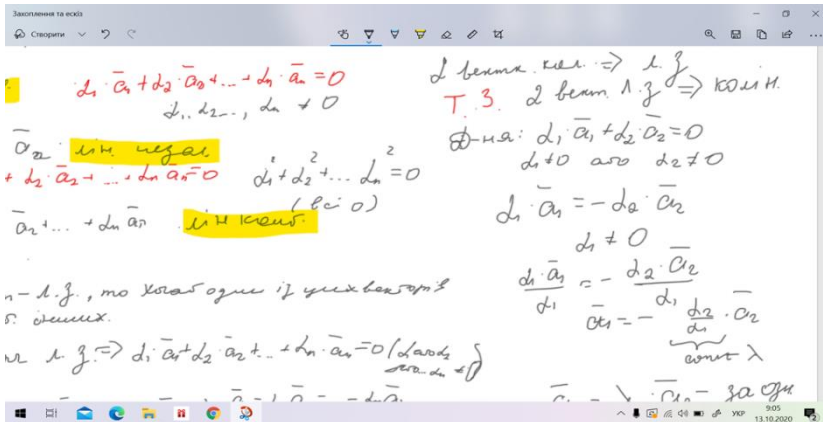 Захоплення та ескіз
Створити
α₁·a̅₁+α₂·a̅₂+...+αₙ·a̅ₙ=0
α₁, α₂..., αₙ ≠ 0
лін. незал
+ α₂·a̅₂+...+αₙa̅ₙ=0
α₁²+α₂²+... αₙ²=0
(всі 0)
a̅₂+... + αₙa̅ₙ лін комб.
n-л.з., то хоча б один із цих векторів
л.з. => α₁·a̅₁+α₂·a̅₂+...+αₙ·a̅ₙ=0
2 вект. кол. => л.з
Т.3. 2 вект. л.з => колін.
Д-ня: α₁·a̅₁+α₂·a̅₂=0
α₁≠0 або α₂≠0
α₁·a̅₁=-α₂·a̅₂
α₁≠0
α₁·a̅₁/α₁ = - α₂·a̅₂/α₁
a̅₁=- α₂/α₁ · a̅₂
const λ
за озн
УКР
9:05
13.10.2020